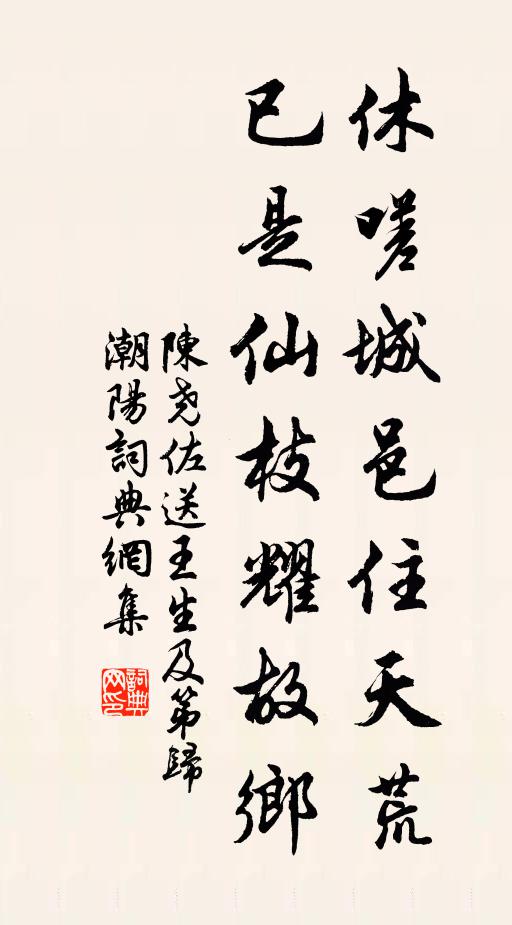 休嗟城邑住天荒
已是仙枝耀故鄉
陳堯佐送王生及第歸
潮陽詞典網集
詞典网印